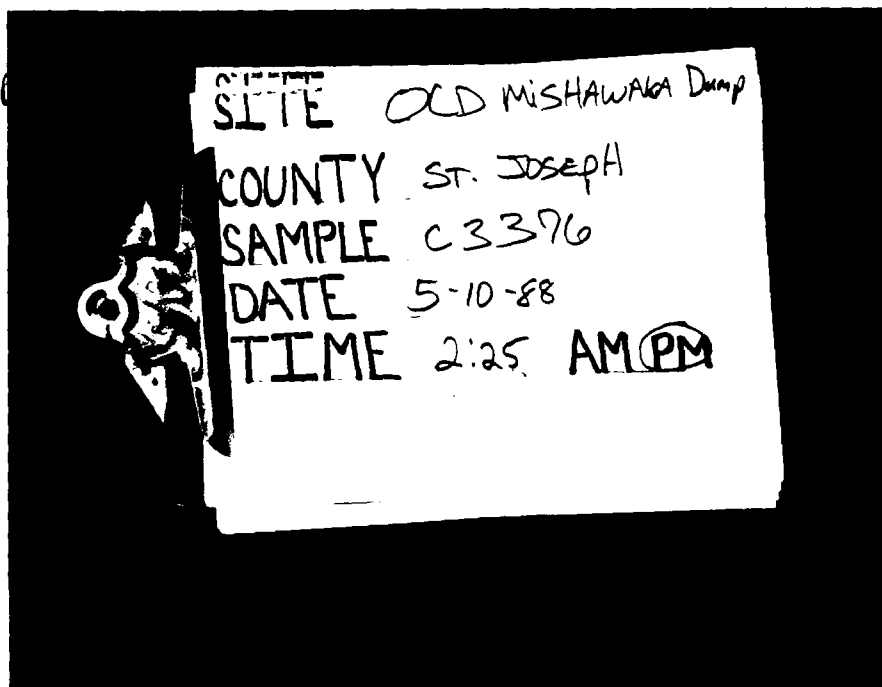 SITE OLD MISHAWAKA Dump
COUNTY ST. JOSEPH
SAMPLE C3376
DATE 5-10-88
TIME 2:25 AM PM